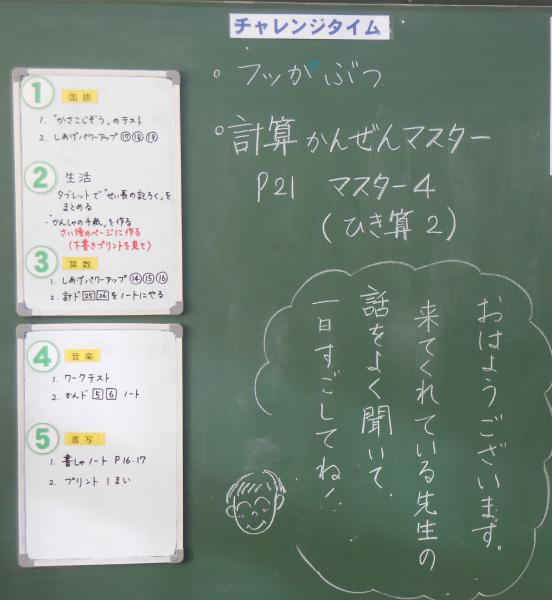 チャレンジタイム
。フッがぶつ
。計算かんぜんマスター
P21 マスター4
(ひき算2)
おはようございます。
来てくれている先生の
話をよく聞いて、
一日すごしてね!
1 国語
1. 「かさこじぞう」のテスト
2. しあげパワーアップ⑰⑱⑲
2 生活
タブレットで「せい長の記ろく」を
まとめる
・「かんしゃの手紙」を作る
さい後のページに作る
(下書きプリントを見て)
3 算数
1. しあげパワーアップ⑭⑮⑯
2. 計ド 25 26 をノートにやる
4 音楽
1. ワークテスト
2. かんド 5 6 ノート
5 書写
1. 書しゃノート P16.17
2. プリント 1まい